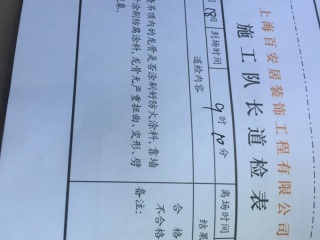 上海百安居装饰工程有限公司
施工队长道检表
到场时间 9时20分 离场时间
道检内容 结果
吊顶内的龙骨是否涂刷好防火涂料,靠墙
涂刷防腐涂料,龙骨无严重扭曲、变形、劈
合格
不合格
备注: